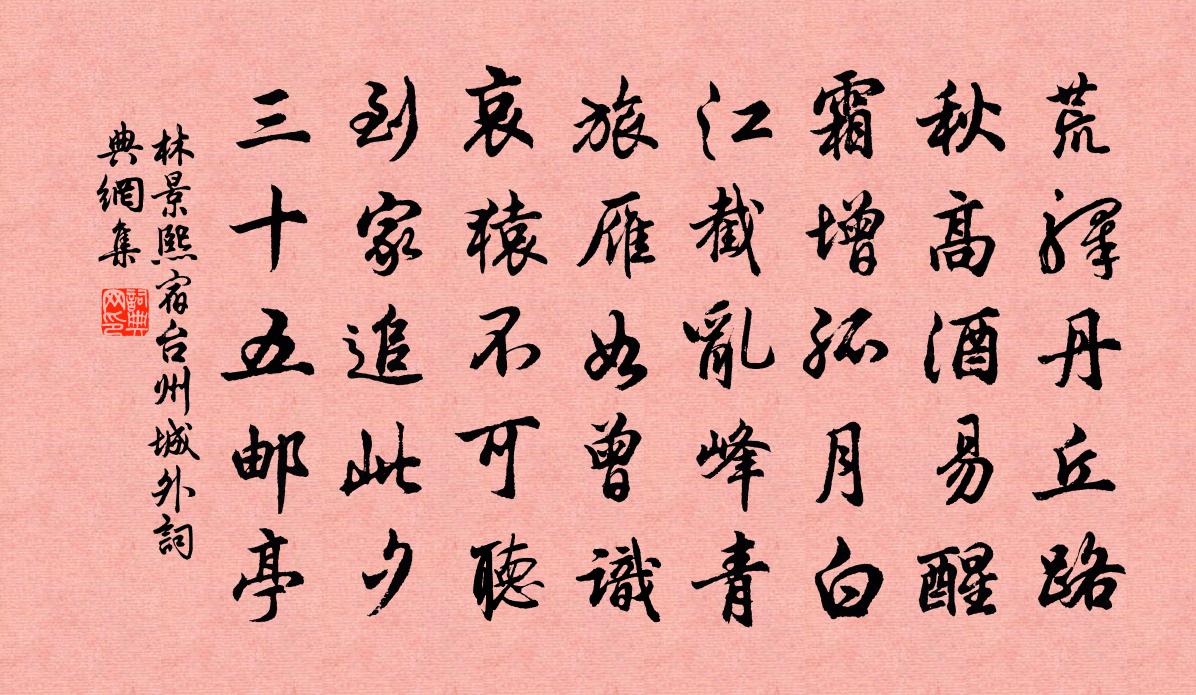 荒驛丹丘路
秋高酒易醒
霜增孤月白
江截亂峰青
旅雁如曾識
哀猿不可聽
到家追此夕
三十五邮亭
林景熙宿台州城外詞
典網集
詞典
网印